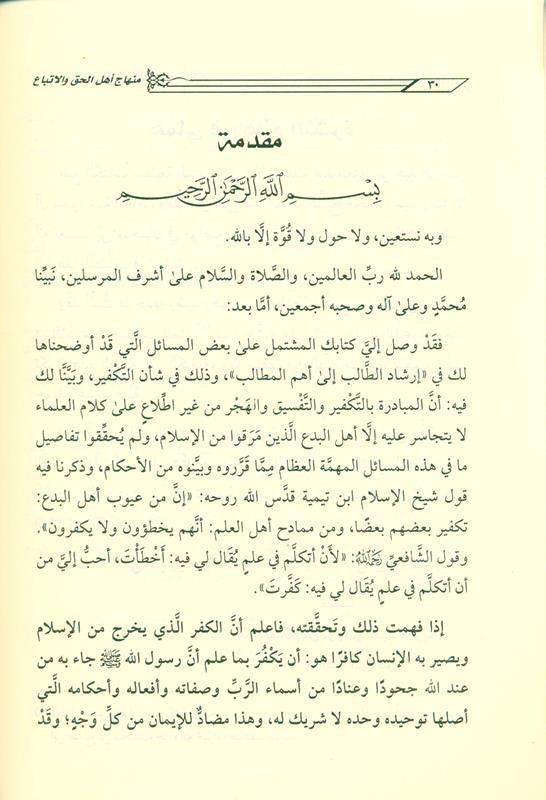 ٣٠
منهاج أهل الحق والاتباع
مقدمة
بِسْمِ اللَّهِ الرَّحْمَٰنِ الرَّحِيمِ
وبه نستعين، ولا حول ولا قُوَّة إلَّا بالله.
الحمد لله ربِّ العالمين، والصَّلاة والسَّلام علىٰ أشرف المرسلين، نَبيِّنا
مُحمَّدٍ وعلىٰ آله وصحبه أجمعين، أمَّا بعد:
فقَدْ وصل إليَّ كتابك المشتمل علىٰ بعض المسائل الَّتي قَدْ أوضحناها
لك في «إرشاد الطَّالب إلىٰ أهم المطالب»، وذلك في شأن التَّكْفير، وبيَّنَّا لك
فيه: أنَّ المبادرة بالتَّكْفير والتَّفْسيق والهَجْر من غير اطِّلاعٍ علىٰ كلام العلماء
لا يتجاسر عليه إلَّا أهل البدع الَّذين مَرَقوا من الإسلام، ولم يُحقِّقوا تفاصيل
ما في هذه المسائل المهمَّة العظام مِمَّا قَرَّروه وبيَّنوه من الأحكام، وذكرنا فيه
قول شيخ الإسلام ابن تيمية قدَّس الله روحه: «إنَّ من عيوب أهل البدع:
تكفير بعضهم بعضًا، ومن ممادح أهل العلم: أنَّهم يخطؤون ولا يكفرون».
وقول الشَّافعيِّ رَحِمَهُ اللَّهُ: «لأَنْ أتكلَّم في علمٍ يُقَال لي فيه: أَخْطَأْتَ، أحبُّ إليَّ من
أن أتكلَّم في علمٍ يُقَال لي فيه: كَفَّرتَ».
إذا فهمت ذلك وتَحقَّقته، فاعلم أنَّ الكفر الَّذي يخرج من الإسلام
ويصير به الإنسان كافرًا هو: أن يَكْفُرَ بما علم أنَّ رسول الله ﷺ جاء به من
عند الله جحودًا وعنادًا من أسماء الرَّبِّ وصفاته وأفعاله وأحكامه الَّتي
أصلها توحيده وحده لا شريك له، وهذا مضادٌّ للإيمان من كلِّ وَجْهٍ؛ وقَدْ